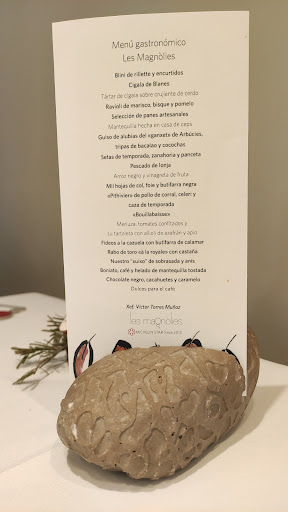 Menú gastronómico
Les Magnòlies
Blini de rillette y encurtidos
Cigala de Blanes
Tártar de cigala sobre crujiente de cerdo
Ravioli de marisco, bisque y pomelo
Selección de panes artesanales
Mantequilla hecha en casa de ceps
Guiso de alubias del «ganxet» de Arbúcies,
tripas de bacalao y cocochas
Setas de temporada, zanahoria y panceta
Pescado de lonja
Arroz negro y vinagreta de fruta
Mil hojas de col, foie y butifarra negra
«Pithivier» de pollo de corral, celeri y
caza de temporada
«Bouillabaisse»
Merluza, tomates confitados y
su tartaleta con allioli de azafrán y apio
Fideos a la cazuela con butifarra de calamar
Rabo de toro «à la royale» con castaña
Nuestro "xuixo" de sobrasada y anís
Boniato, café y helado de mantequilla tostada
Chocolate negro, cacahuetes y caramelo
Dulces para el café
Xef: Víctor Torres Muñoz
les magnòlies